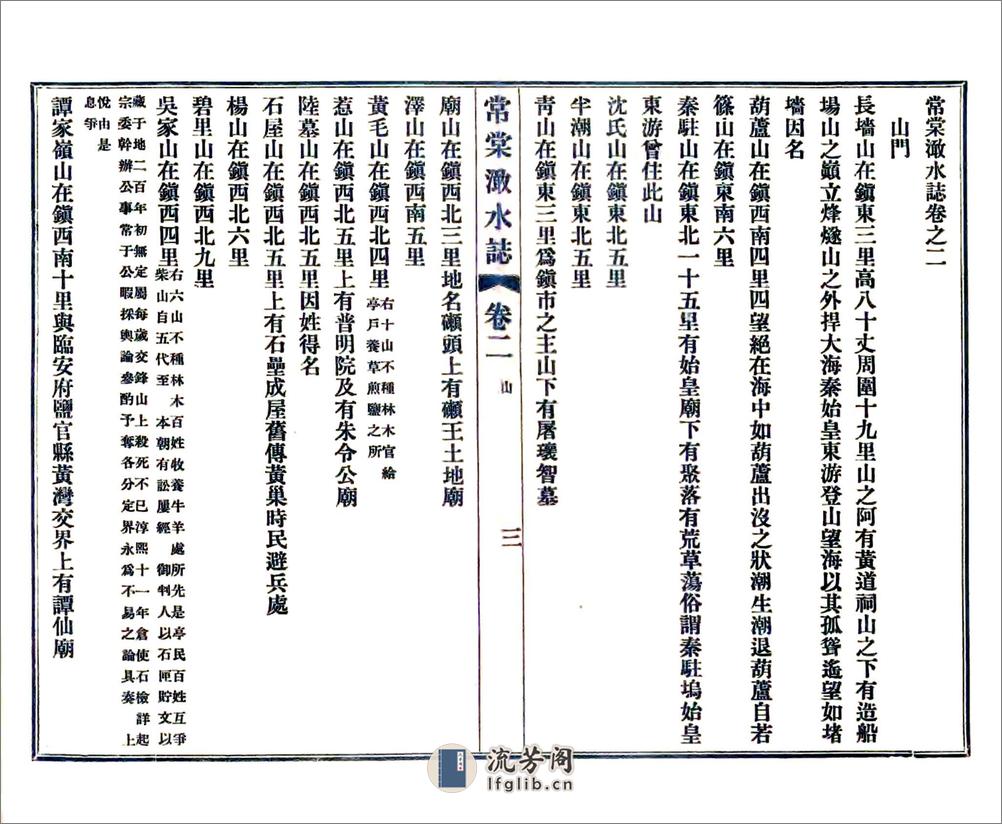 常棠澉水誌卷之二
山門
長墻山在鎭東三里高八十丈周圍十九里山之阿有黃道祠山之下有造船
場山之巔立烽燧山之外捍大海秦始皇東游登山望海以其孤聳遙望如堵
墻因名
葫蘆山在鎭西南四里四望絕在海中如葫蘆出沒之狀潮生潮退葫蘆自若
篠山在鎭東南六里
秦駐山在鎭東北一十五里有始皇廟下有聚落有荒草蕩俗謂秦駐塢始皇
東游曾住此山
沈氏山在鎭東北五里
半潮山在鎭東北五里
靑山在鎭東三里爲鎭市之主山下有屠瓌智墓
常棠澉水誌
卷二
山
三
廟山在鎭西北三里地名巗頭上有巗王土地廟
澤山在鎭西南五里
黃毛山在鎭西北四里
右十山不種林木官給
亭戶養草煎鹽之所
惹山在鎭西北五里上有普明院及有朱令公廟
陸墓山在鎭西北五里因姓得名
石屋山在鎭西北五里上有石壘成屋舊傳黃巢時民避兵處
楊山在鎭西北六里
碧里山在鎭西北九里
吳家山在鎭西四里
右六山不種林木百姓牧養牛羊處所先是亭民百姓互爭
柴山自五代至 本朝有訟屢經 御判人以石匣貯文以
藏于地二百年初無定屬每歲交鋒山上殺死不已淳熙十一年倉使石檢詳起
宗委幹辦公事常于公暇採輿論叅酌予奪各分定界永爲不易之論具奏 上
悅由是
息爭
譚家嶺山在鎭西南十里與臨安府鹽官縣黃灣交界上有譚仙廟
流芳阁
lfglib.cn